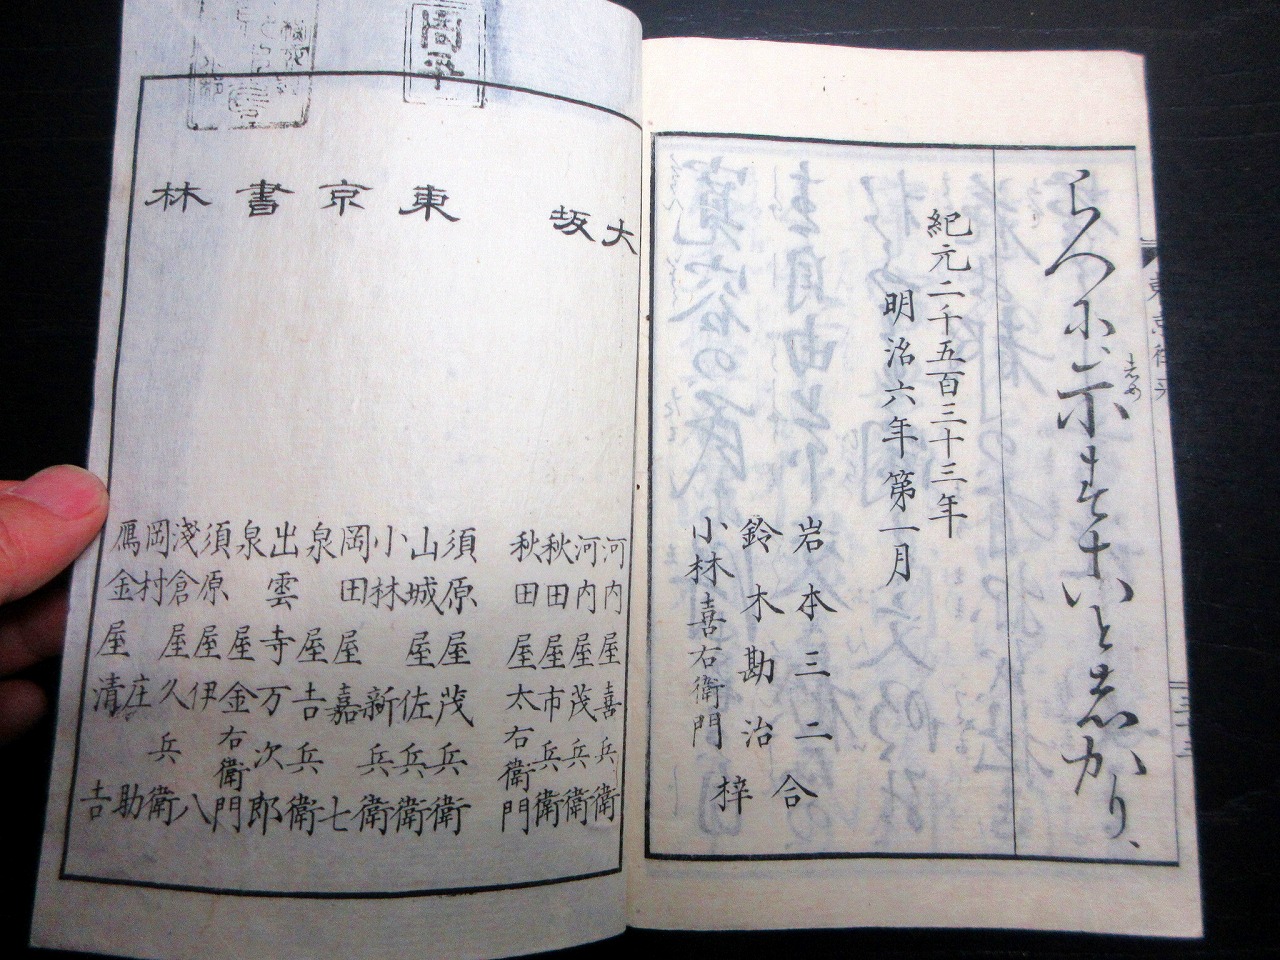 らへに示すすになむと志かり
志め
紀元二千五百三十三年
明治六年第一月
岩本三二
鈴木勘治
小林喜右衛門
合
梓
大坂
河内屋喜兵衛
河内屋茂兵衛
秋田屋市兵衛
秋田屋太右衛門
東京書林
須原屋茂兵衛
山城屋佐兵衛
小林新兵衛
岡田屋嘉七
泉屋吉兵衛
出雲寺万次郎
泉屋金右衛門
須原屋伊八
淺倉屋久兵衛
岡村庄助
鴈金屋清吉